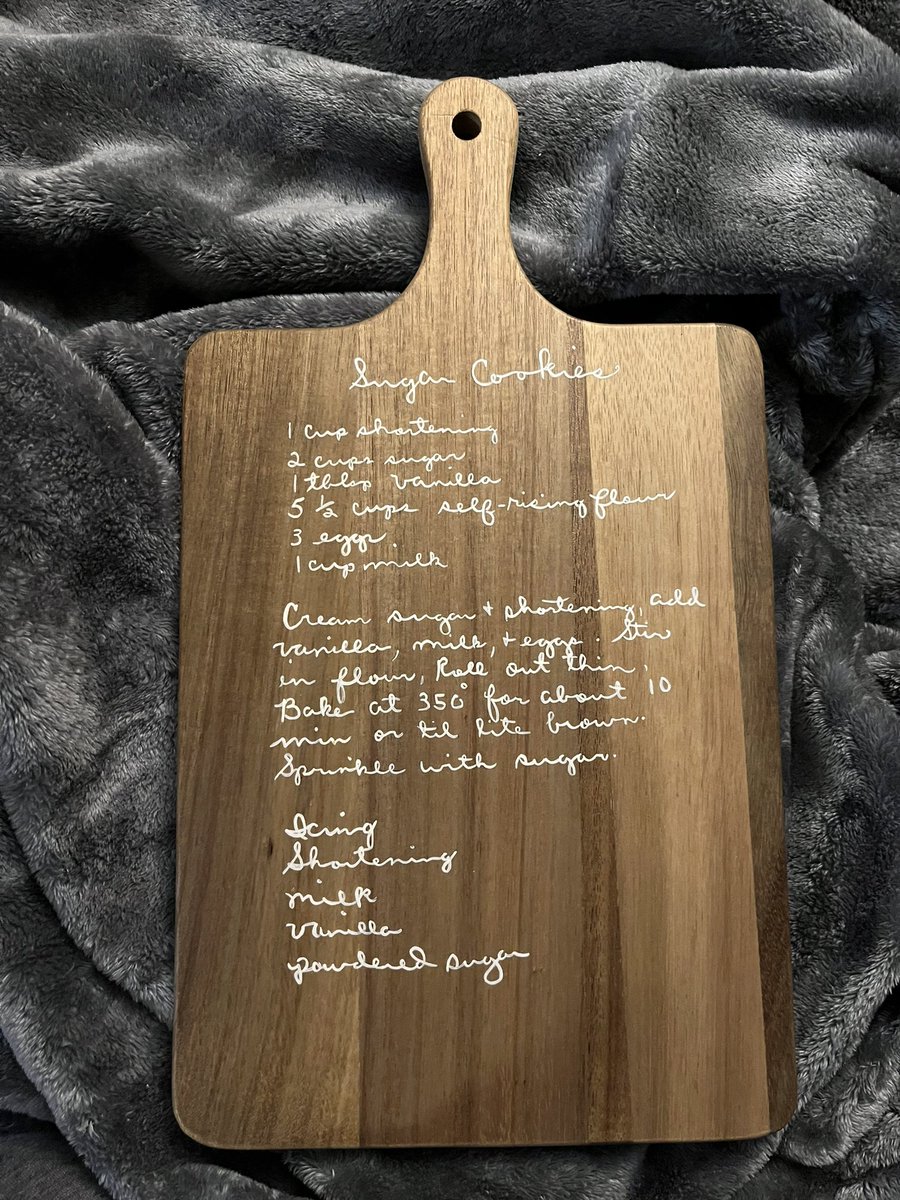 Sugar Cookies
1 cup shortening
2 cups sugar
1 tblsp vanilla
5 ½ cups self-rising flour
3 eggs
1 cup milk
Cream sugar + shortening, add
vanilla, milk, + eggs. Stir
in flour, Roll out thin.
Bake at 350° for about 10
min or til lite brown.
Sprinkle with sugar.
Icing
Shortening
milk
vanilla
powdered sugar